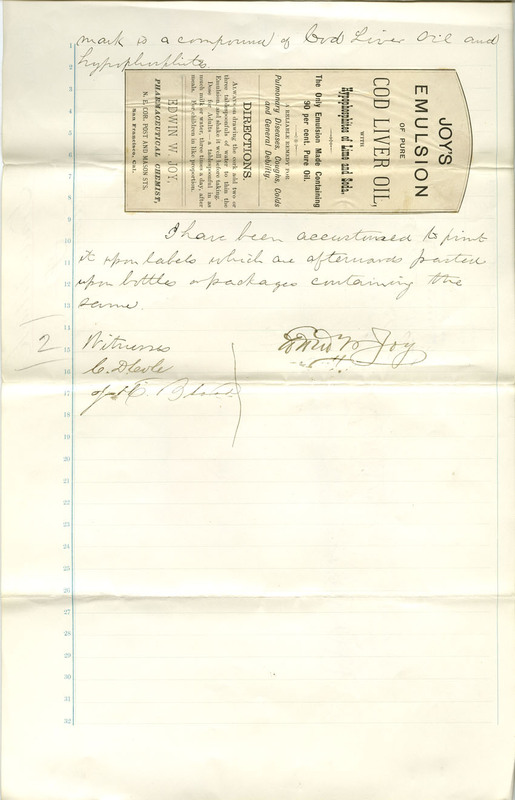 mark is a compound of Cod Liver Oil and
hypophosphites
JOY'S
EMULSION
OF PURE
COD LIVER OIL,
WITH
Hypophosphites of Lime and Soda.
The Only Emulsion Made Containing
90 per cent. Pure Oil.
A RELIABLE REMEDY FOR
Pulmonary Diseases, Coughs, Colds
and General Debility.
DIRECTIONS.
Always on drawing the cork add two or
three tablespoonfuls of water to thin the
Emulsion, and shake it well before taking.
Dose for Adults—a tablespoonful in as
much milk or water, three times a day, after
meals. For children in like proportion.
EDWIN W. JOY,
PHARMACEUTICAL CHEMIST,
N. E. COR. POST AND MASON STS.
San Francisco, Cal.
I have been accustomed to print
it upon labels which are afterwards pasted
upon bottles or packages containing the
same.
2
Witnesses
Edwin W. Joy
C. D. Cole
1
2
3
4
5
6
7
8
9
10
11
12
13
14
15
16
17
18
19
20
21
22
23
24
25
26
27
28
29
30
31
32